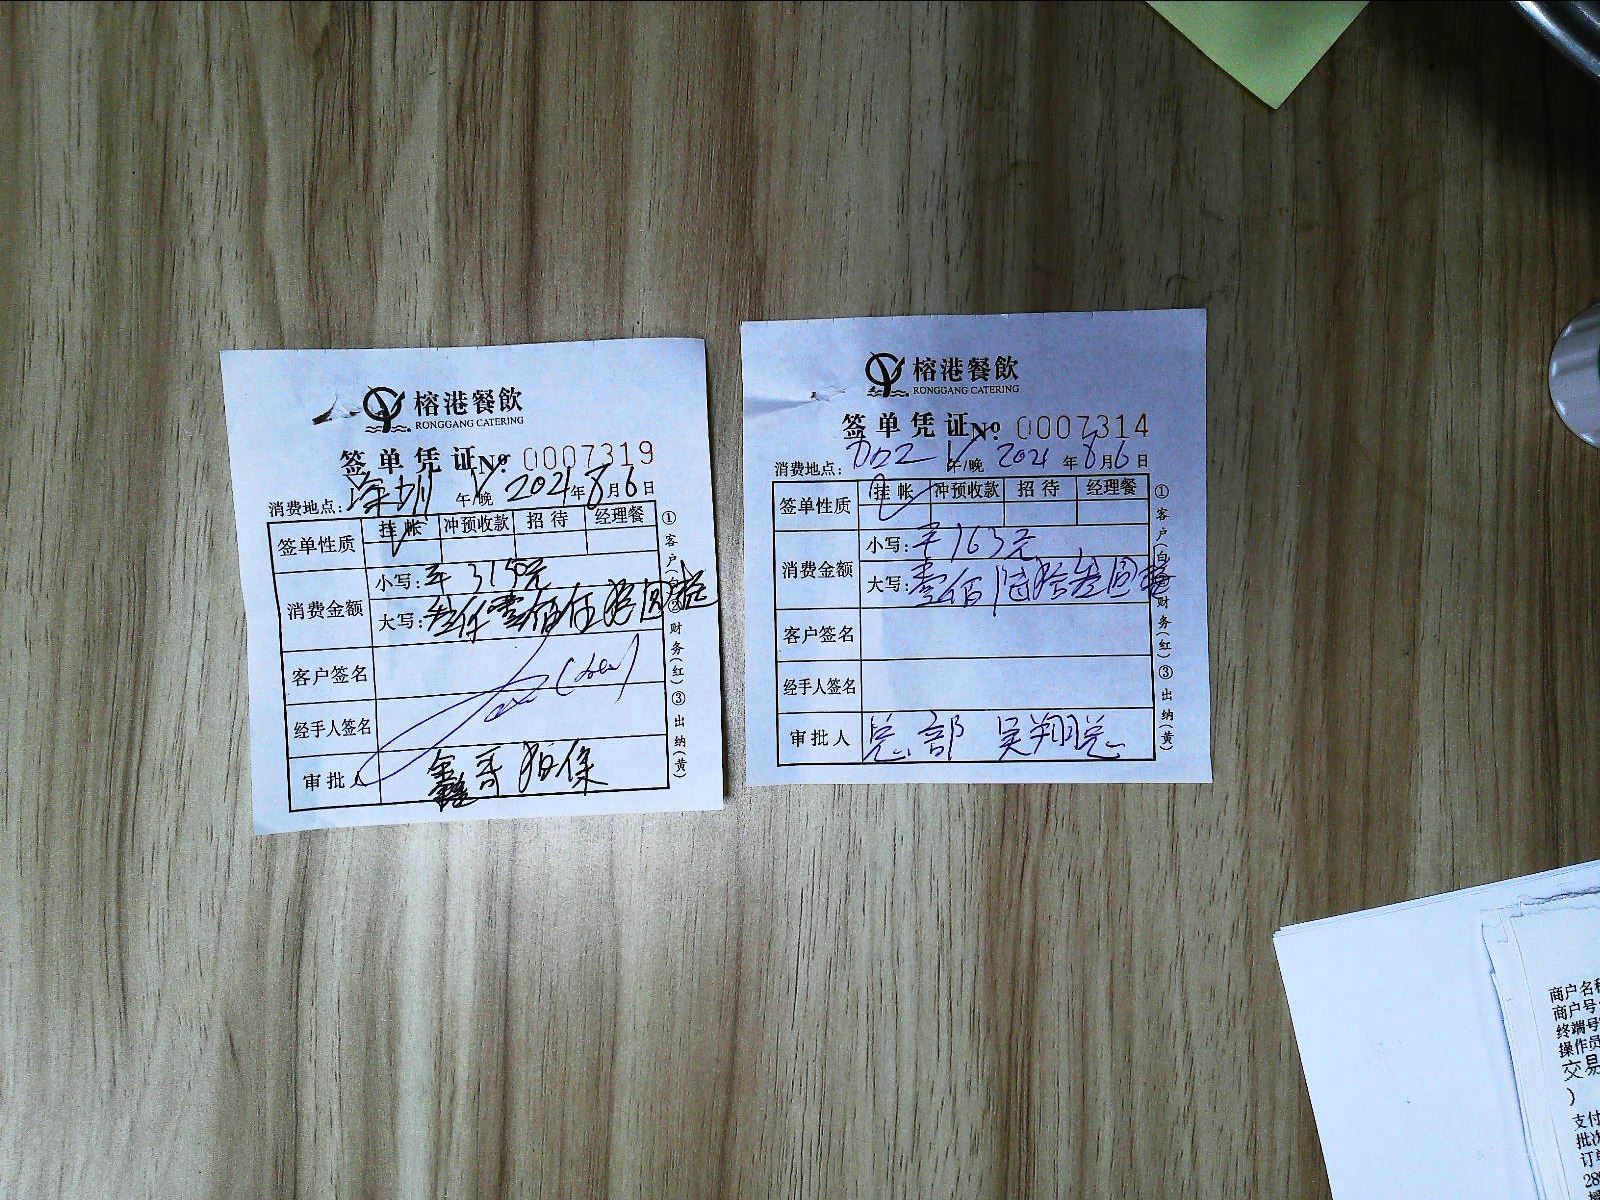 榕港餐飲
RONGGANG CATERING
签单凭证 No 0007319
消费地点：深圳 午/晚 2021年8月6日
签单性质 挂帐 冲预收款 招待 经理餐
消费金额 小写：¥3150元
大写：叁仟壹佰伍拾圆整
客户签名
经手人签名
审批人 鑫哥担保
①客户(白)②财务(红)③出纳(黄)
榕港餐飲
RONGGANG CATERING
签单凭证 No 0007314
消费地点： 午/晚 2021年8月6日
签单性质 挂帐 冲预收款 招待 经理餐
消费金额 小写：¥163元
大写：壹佰陆拾叁圆整
客户签名
经手人签名
审批人 总部 吴翔总
①客户(白)②财务(红)③出纳(黄)
商户名称
商户号
终端号
操作员
交易
)
支付
批次
订单